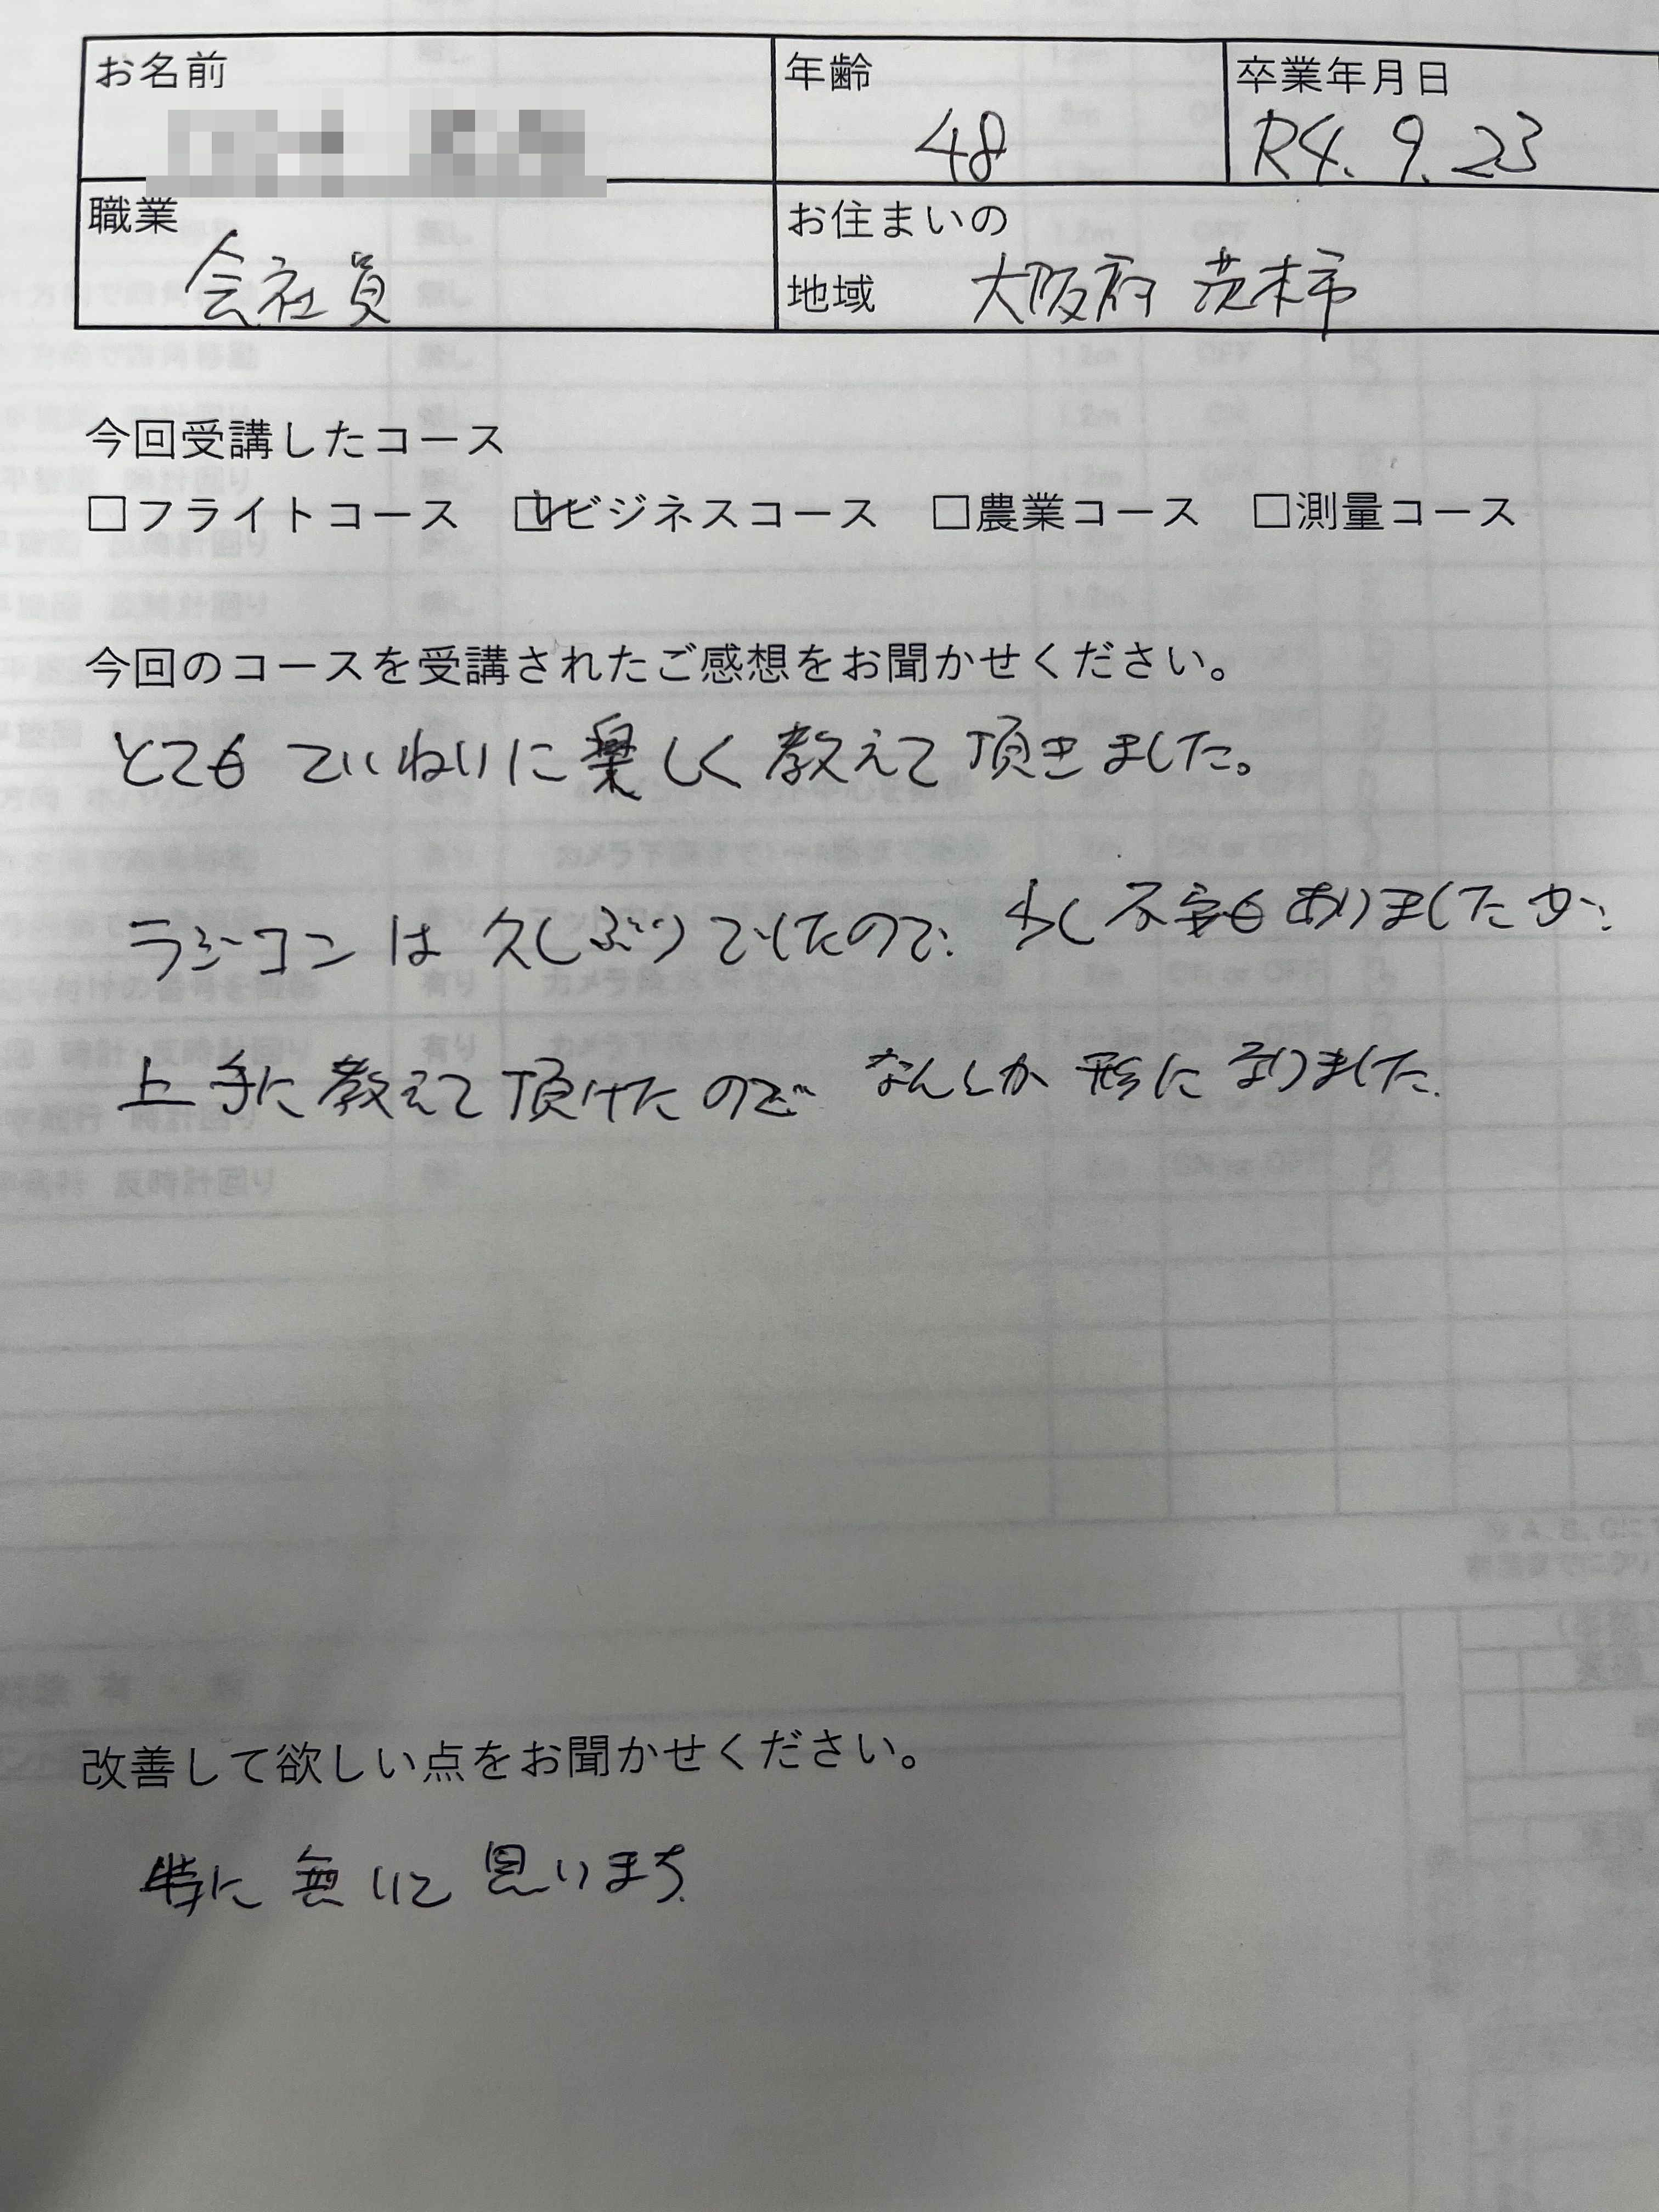 お名前
年齢
48
卒業年月日
R4.9.23
職業
会社員
お住まいの
地域 大阪府 茨木市
今回受講したコース
□フライトコース ☑ビジネスコース □農業コース □測量コース
今回のコースを受講されたご感想をお聞かせください。
とても ていねいに楽しく教えて頂きました。
ラジコンは久しぶりでしたので、少し不安もありましたが、
上手に教えて頂けたので なんとか形になりました.
改善して欲しい点をお聞かせください。
特に無いと思います.